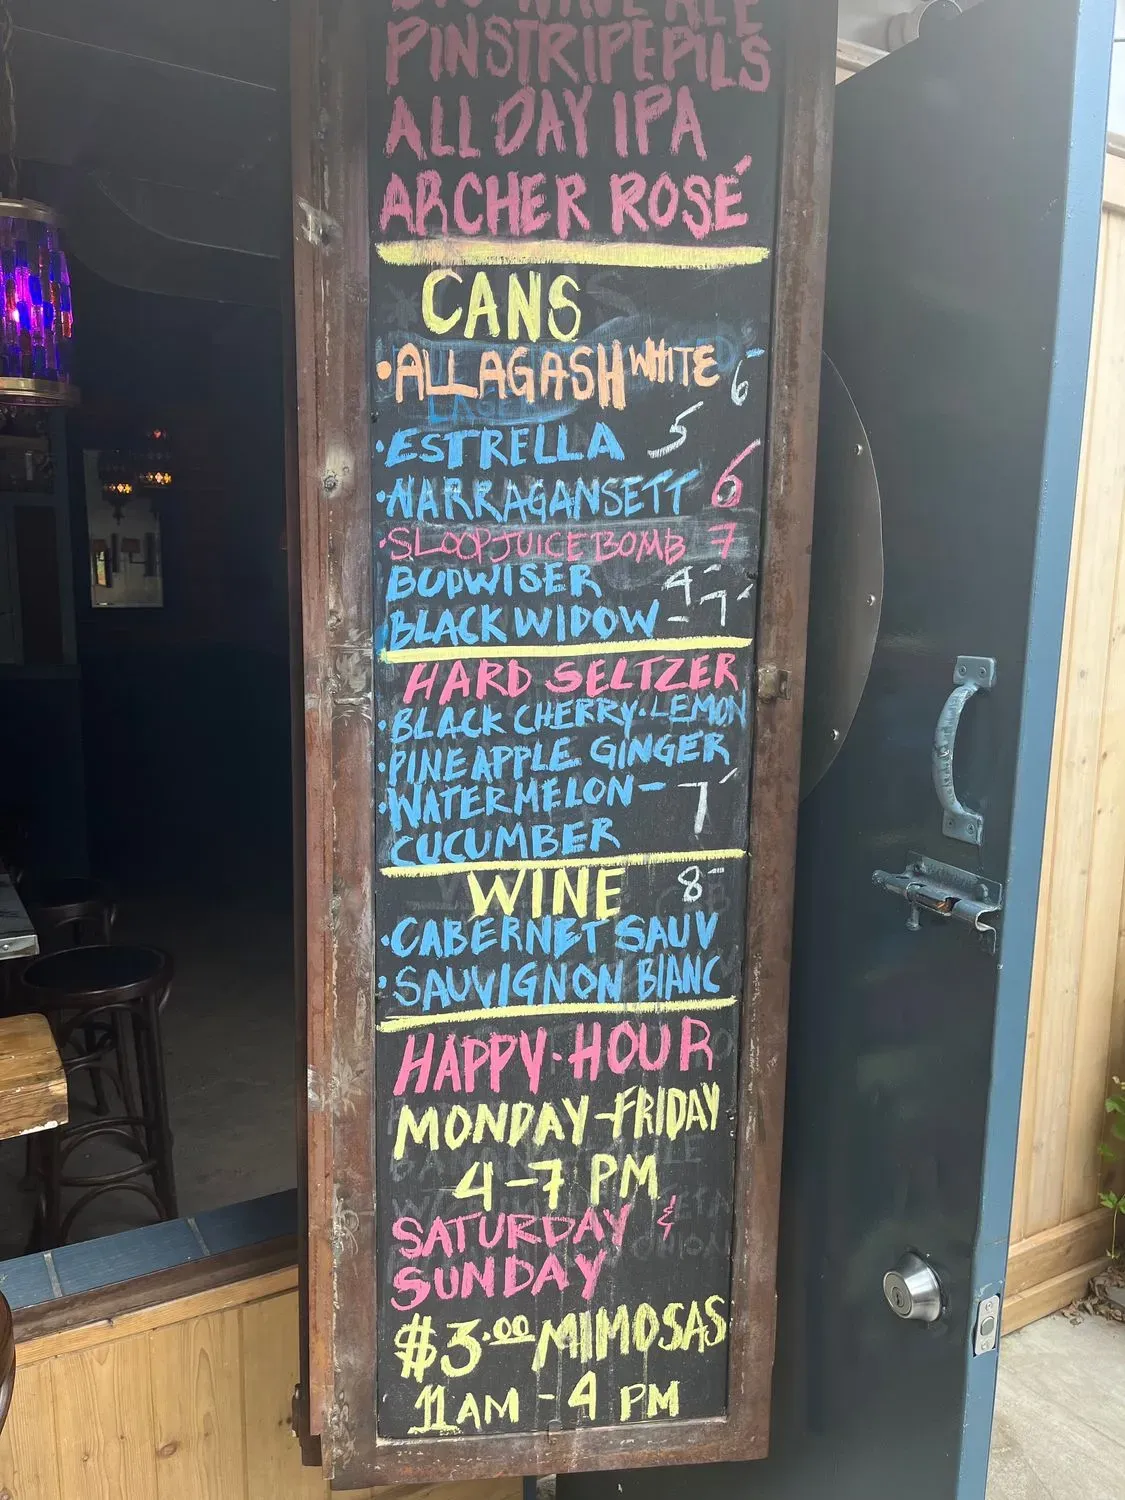 WAVE ALE
PINSTRIPE PILS
ALL DAY IPA
ARCHER ROSÉ
CANS
•ALLAGASH WHITE 6-
•ESTRELLA 5
•NARRAGANSETT 6
•SLOOP JUICE BOMB 7
BUDWISER 4-
BLACK WIDOW - 7-
HARD SELTZER
•BLACK CHERRY•LEMON
•PINEAPPLE GINGER
•WATERMELON- 7-
CUCUMBER
WINE 8-
•CABERNET SAUV
•SAUVIGNON BLANC
HAPPY•HOUR
MONDAY-FRIDAY
4-7 PM
SATURDAY &
SUNDAY
$3.00 MIMOSAS
11AM - 4 PM